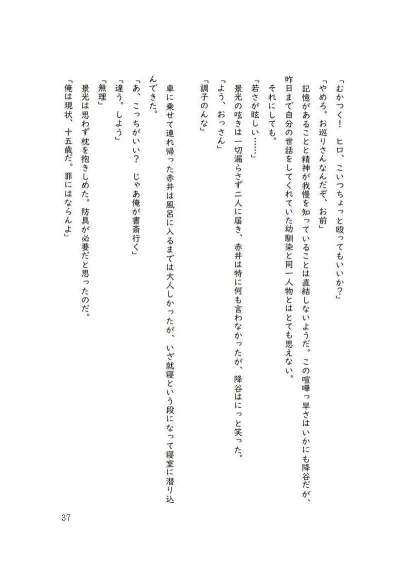 「むかつく！　ヒロ、こいつちょっと殴ってもいいか？」
「やめろ。お巡りさんなんだぞ、お前」
　記憶があることと精神が我慢を知っていることは直結しないようだ。この喧嘩っ早さはいかにも降谷だが、
昨日まで自分の世話をしてくれていた幼馴染と同一人物とはとても思えない。
　それにしても。
「若さが眩しい……」
　景光の呟きは一切漏らさず二人に届き、赤井は特に何も言わなかったが、降谷はにっと笑った。
「よう、おっさん」
「調子のんな」
　車に乗せて連れ帰った赤井は風呂に入るまでは大人しかったが、いざ就寝という段になって寝室に潜り込
んできた。
「あ、こっちがいい？　じゃあ俺が書斎行く」
「違う。しよう」
「無理」
　景光は思わず枕を抱きしめた。防具が必要だと思ったのだ。
「俺は現状、十五歳だ。罪にはならんよ」
37